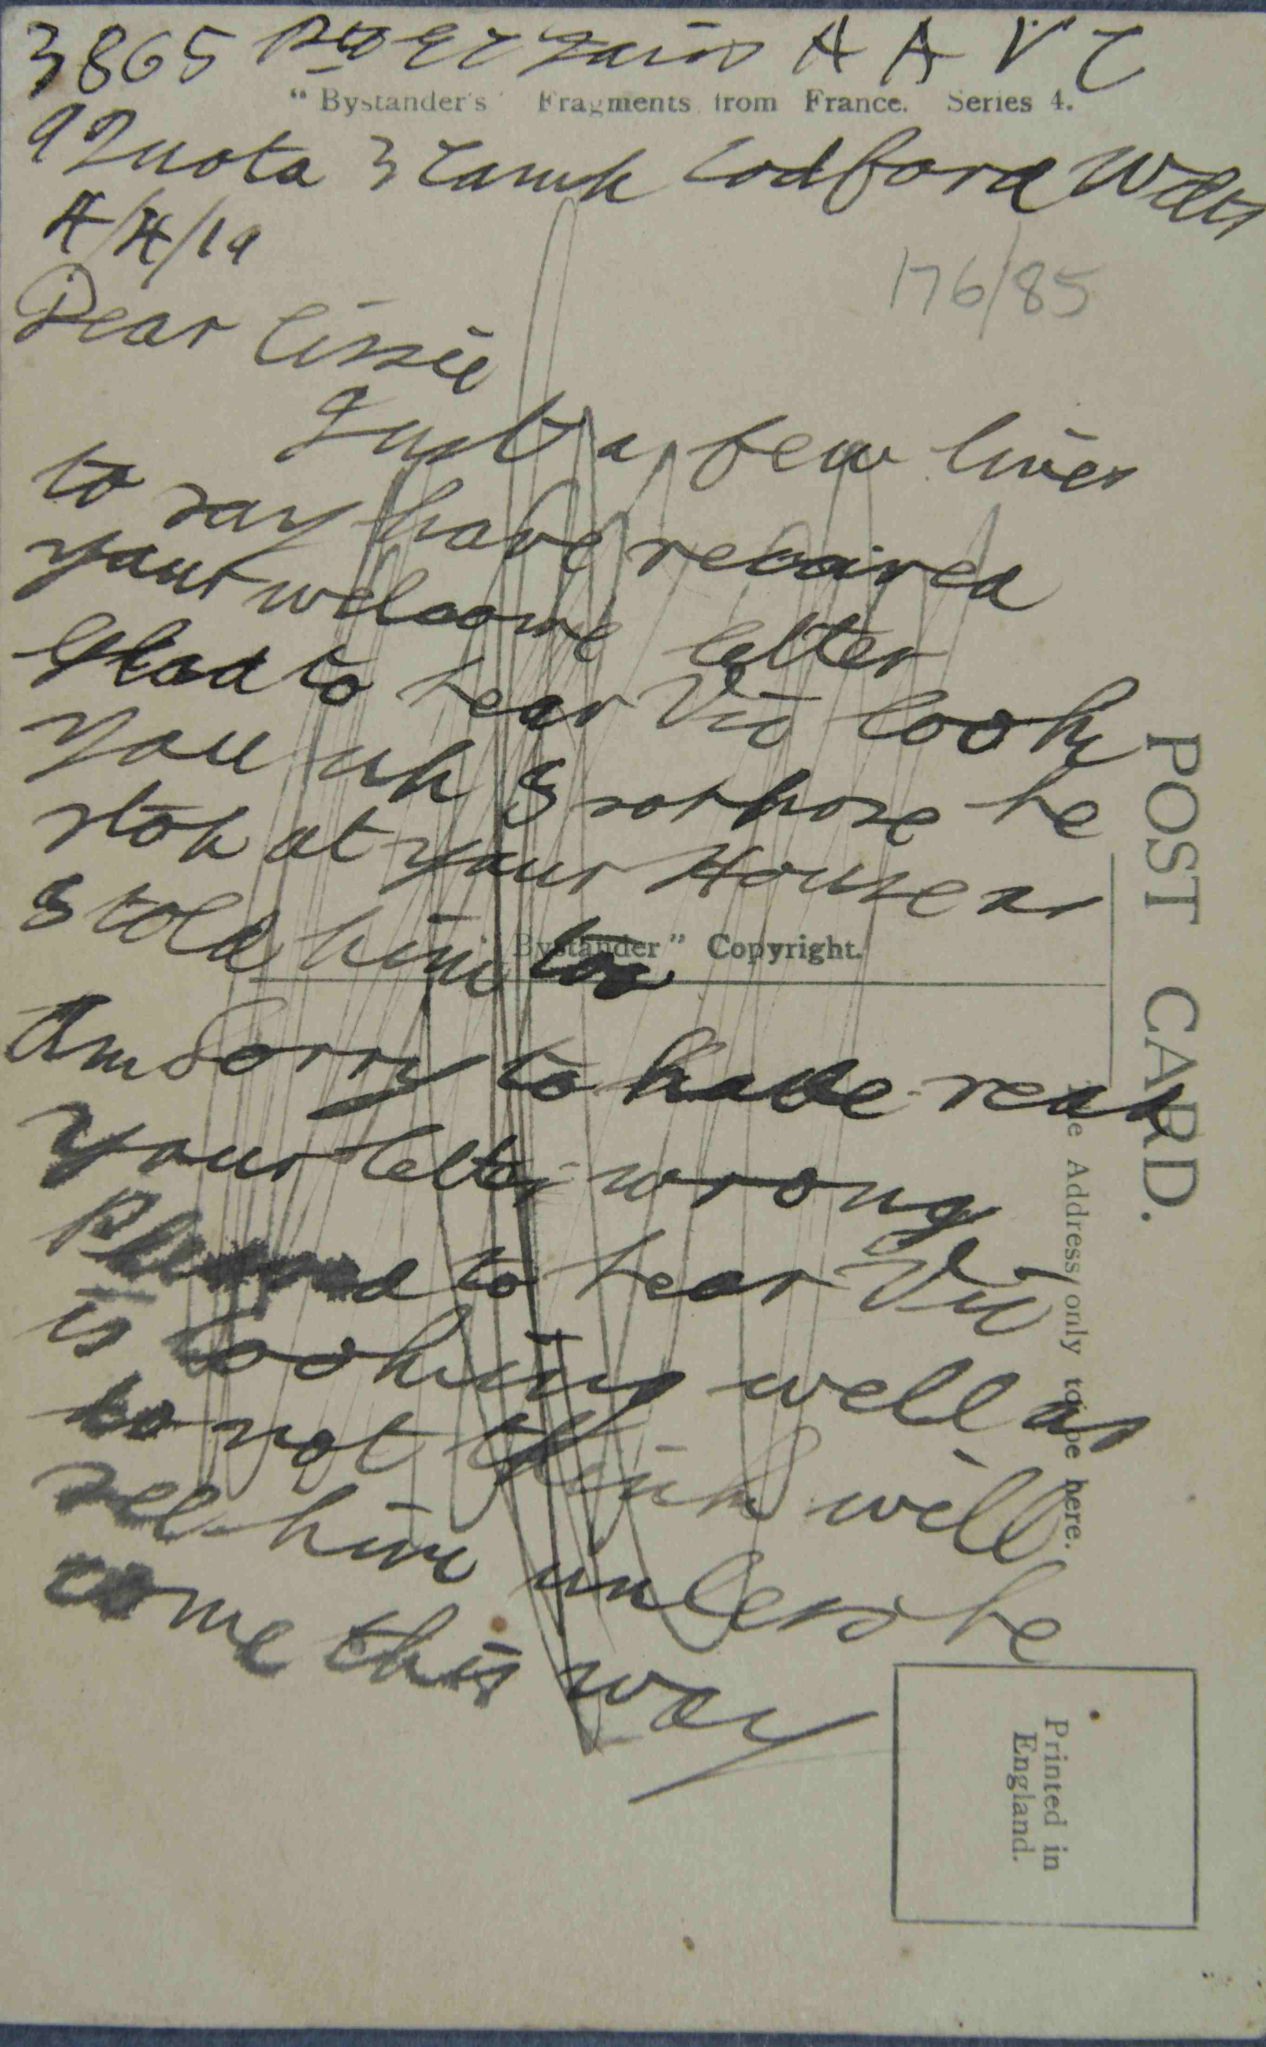 3865 Pte
A A V C
"Bystander's" Fragments from France. Series 4.
9 Quota 3 Camp Codford Wilts
4/4/19
176/85
Dear Cissie
Just a few lines
to say have received
your welcome letter
Glad to hear Vic look
you up I sorpose he
stop at your House as
I told him to
"Bystander" Copyright.
Am Sorry to have read
your letter wrong
Pleased to hear Vic
is looking well as
to not think will
see him unless he
come this way
POST CARD.
The Address only to be here.
Printed in
England.